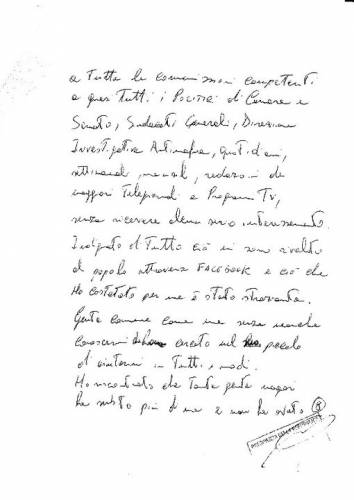 a tutte le commissioni competenti
a quasi tutti i Politici di Camera e
Senato, Sindacati Generali, Direzione
Investigativa Antimafia, quotidiani,
settimanali, mensili, redazioni dei
maggiori Telegiornali e Programmi TV,
senza ricevere alcun serio interessamento.
Indignato di tutto ciò mi sono rivolto
al popolo attraverso FACEBOOK e ciò che
Ho costatato per me è stato straziante.
Gente comune come me senza neanche
conoscermi cercato nel piccolo
di aiutarmi in tutti i modi.
Ho riscontrato che tanta gente magari
ha subito più di me e non ha avuto 8